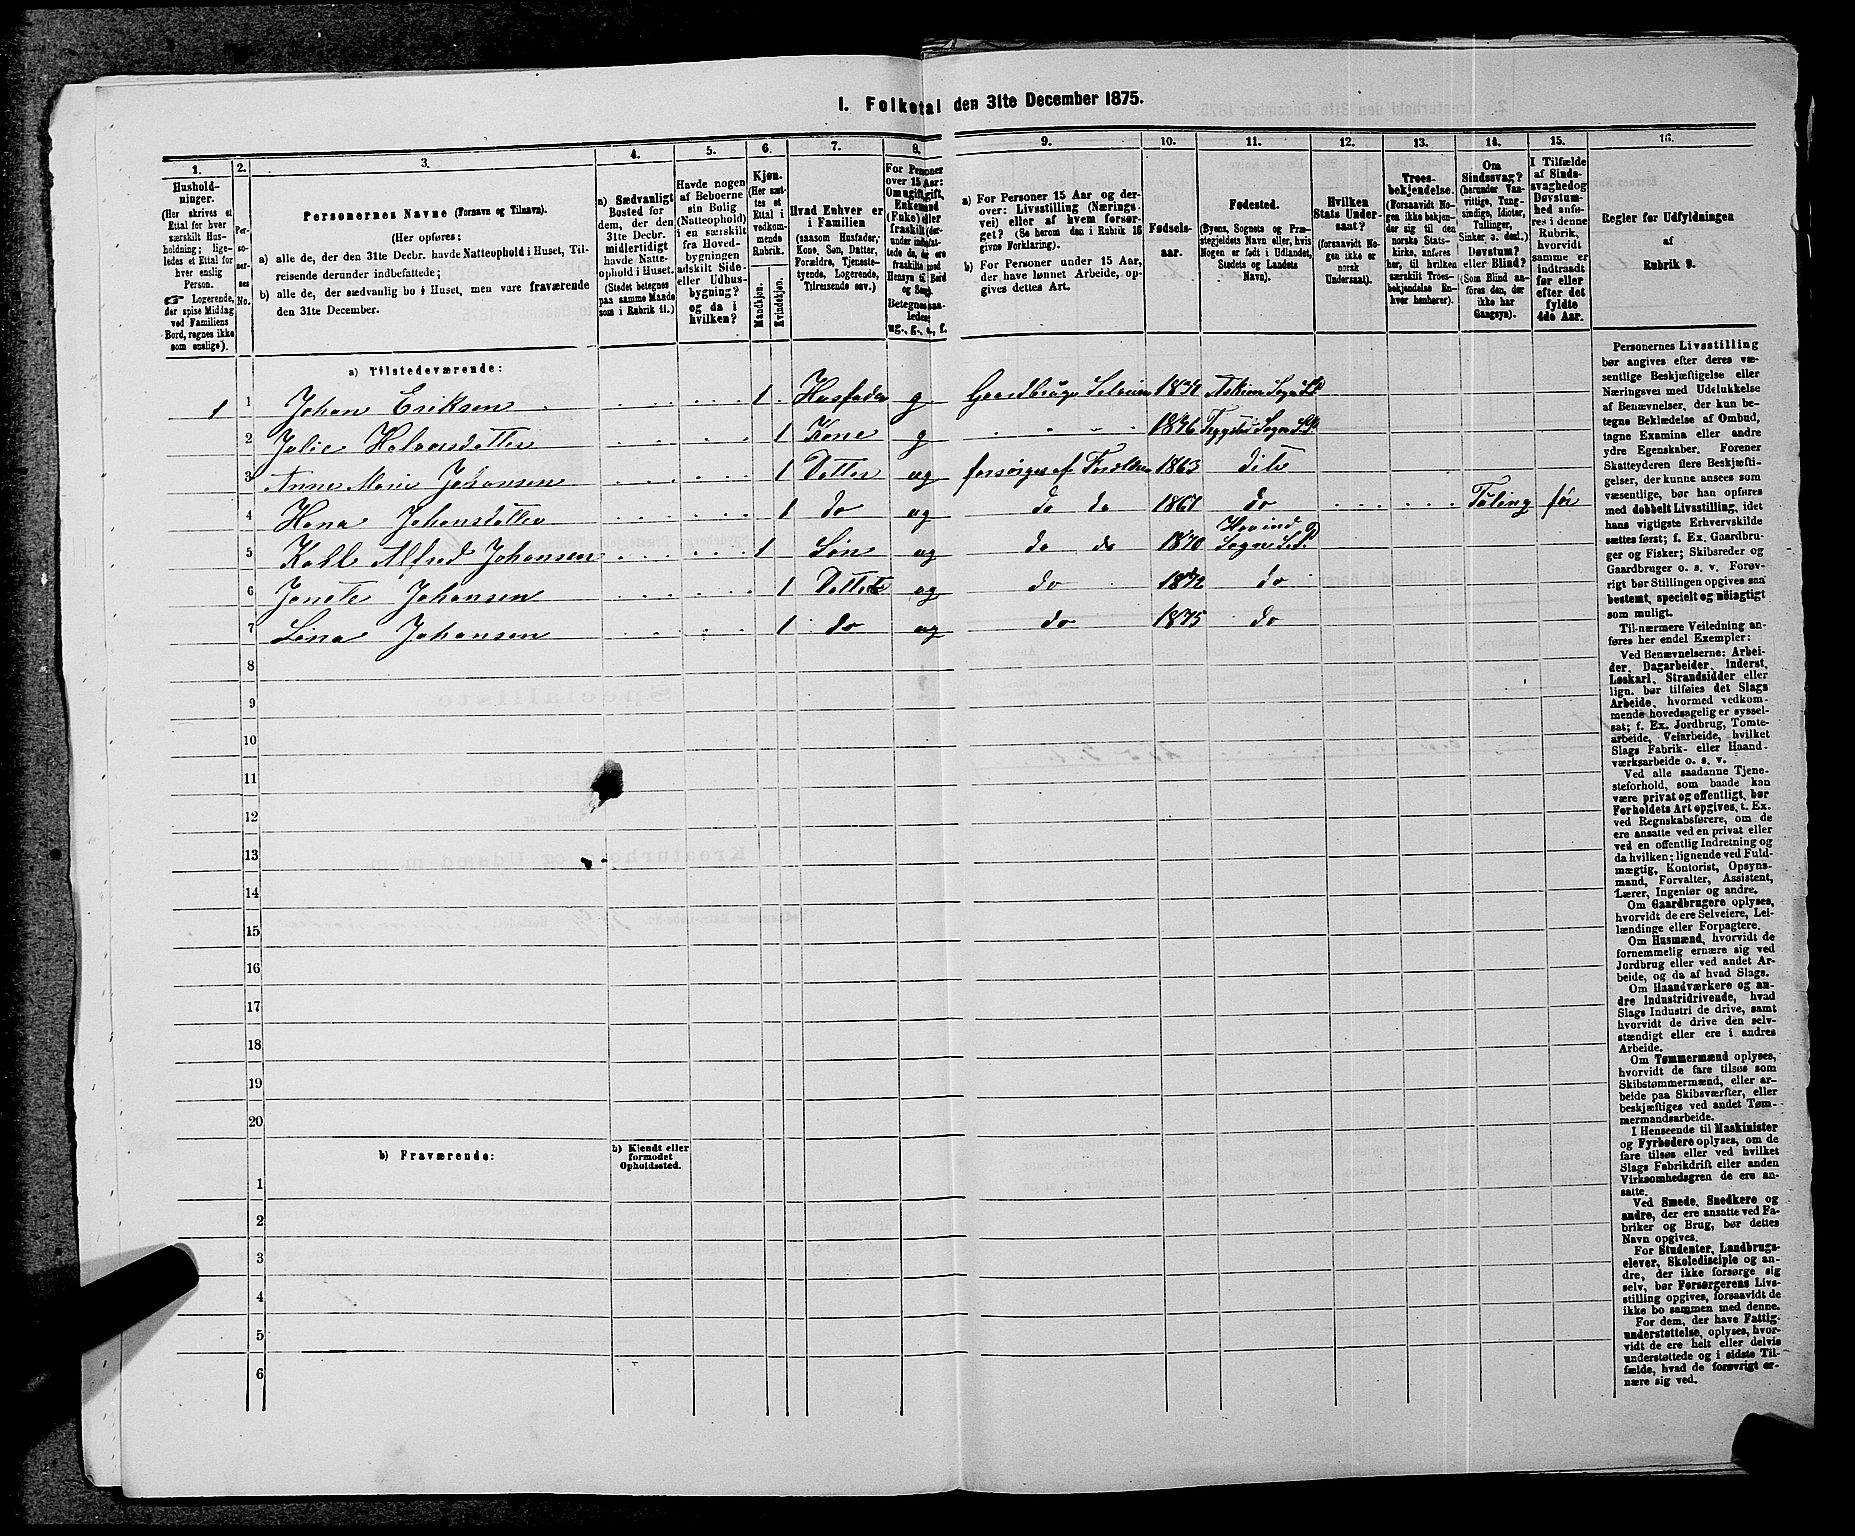 I. Folketal den 31te December 1875.
1.
2.
3.
4.
5.
6.
7.
8.
9.
10.
11.
12.
13.
14.
15.
16.
Hushold-
ninger.
(Her skrives et
Ettal for hver
særskilt Hus-
holdning; lige-
ledes et Ettal for
hver enslig
Person.
Logerende,
der spise Middag
ved Familiens
Bord, regnes ikke
som enslige).
Per-
so-
ner-
nes
No.
Personernes Navne (Fornavn og Tilnavn).
(Her opføres:
a) alle de, der den 31te Decbr. havde Natteophold i Huset, Til-
reisende derunder indbefattede;
b) alle de, der sædvanlig bo i Huset, men vare fraværende
den 31te December.
a) Sædvanligt
Bosted for
dem, der den
31te Decbr.
midlertidigt
havde Natte-
ophold i Huset.
(Stedet betegnes
paa samme Maade
som i Rubrik 11.)
Havde nogen
af Beboerne
sin Bolig
(Natteophold)
i en særskilt
fra Hoved-
bygningen
adskilt Side-
eller Udhus-
bygning?
og da i
hvilken?
Kjøn.
(Her sæt-
tes et
Ettal i
vedkom-
mende
Rubrik.
Mandkjøn.
Kvindekjøn.
Hvad Enhver er
i Familien
(saasom Husfader,
Kone, Søn, Datter,
Forældre, Tjeneste-
tyende, Logerende,
Tilreisende osv.)
For Personer
over 15 Aar:
Om ugift, gift,
Enkemand
(Enke) eller
fraskilt
Betegnes saa-
ledes:
ug., g., e., f.
a) For Personer 15 Aar og der-
over: Livsstilling (Nærings-
vei) eller af hvem forsør-
get? (Se herom den i Rubrik 16
givne Forklaring).
b) For Personer under 15 Aar,
der have lønnet Arbeide, op-
gives dettes Art.
Fødsels-
aar.
Fødested.
(Byens, Sognets og Præ-
stegjeldets Navn eller, hvis
Nogen er født i Udlandet,
Stedets og Landets
Navn).
Hvilken
Stats Under-
saat?
(forsaavidt No-
gen ikke er
norsk
Undersaat).
Troes-
bekjendelse.
(Forsaavidt No-
gen ikke bekjen-
der sig til den
norske Stats-
kirke, anføres
her, til hvilken
særskilt Troes-
bekjendelse En-
hver henhører).
Om
Sindssvag?
(herunder Van-
vittige, Tung-
sindige, Idioter,
Tullinger,
Sinker, o. desl.)
Døvstum?
eller Blind?
(Som Blind an-
føres den, der
ikke har
Gangsyn).
I Tilfælde
af Sinds-
svaghed og
Døvstum-
hed anfø-
res i denne
Rubrik,
hvorvidt
samme er
indtraadt
før eller
efter det
fyldte
4de Aar.
Regler for Udfyldningen
af
Rubrik 9.
a) Tilstedeværende:
1 1 Johan Eriksen 1 Husfader g Gaardbruger Selveier 1831 Askim Sogn S P
2 Julie Halvorsdatter 1 Kone g 1846 Trygstad Sogn S P
3 Anne Marie Johansen 1 Datter ug forsørges af Forældre 1863 dito
4 Hana Johansdatter 1 do ug do do 1867 do Tuling før
5 Karl Alfred Johansen 1 Søn ug do do 1870 Hovind Sogn S. P.
6 Janete Johansen 1 Datter ug do 1872 do
7 Lina Johansen 1 do ug do 1875 do
8
9
10
11
12
13
14
15
16
17
18
19
20
b) Fraværende:
b) Kjendt eller
formodet
Opholdssted.
1
2
3
4
5
6
Personernes Livsstilling
bør angives efter deres væ-
sentlige Beskjæftigelse eller
Næringsvei med Udelukkelse
af Benævnelser, der kun be-
tegne Beklædelse af Ombud,
tagne Examina eller andre
ydre Egenskaber. Forener
Skatteyderen flere Beskjæfti-
gelser, der kunne ansees som
væsentlige, bør han opføres
med dobbelt Livsstilling, idet
hans vigtigste Erhvervskilde
sættes først; f. Ex. Gaardbru-
ger og Fisker; Skibsreder og
Gaardbruger o. s. v. Forøv-
rigt bør Stillingen opgives saa
bestemt, specielt og nøiagtigt
som muligt.
Til nærmere Veiledning an-
føres her endel Exempler:
Ved Benævnelserne: Arbei-
der, Dagarbeider, Inderst,
Løskarl, Strandsidder eller
lign. bør tilføies det Slags
Arbeide, hvormed vedkom-
mende hovedsagelig er syssel-
sat; f. Ex. Jordbrug, Tomte-
arbeide, Veiarbeide, hvilket
Slags Fabrik- eller Haand-
værksarbeide o. s. v.
Ved alle saadanne Tjene-
steforhold, som baade kan
være privat og offentligt, bør
Forholdets Art opgives, t. Ex.
ved Regnskabsførere, om de
ere ansatte ved en privat eller
ved en offentlig Indretning og
da hvilken; lignende ved Fuld-
mægtig, Kontorist, Opsyns-
mand, Forvalter, Assistent,
Lærer, Ingeniør og andre.
Om Gaardbrugere oplyses,
hvorvidt de ere Selveiere, Lei-
lændinge eller Forpagtere.
Om Husmænd, hvorvidt de
fornemmelig ernære sig ved
Jordbrug eller ved andet Ar-
beide, og da af hvad Slags.
Om Haandværkere og an-
dre Industridrivende, hvad
Slags Industri de drive, samt
hvorvidt de drive den selv-
stændigt eller ere i andres
Arbeide.
Om Tømmermænd oplyses,
hvorvidt de fare tilsøs som
Skibstømmermænd, eller ar-
beide paa Skibsværfter, eller
beskjæftiges ved andet Tøm-
mermandsarbeide.
I Henseende til Maskinister
og Fyrbødere oplyses, om de
fare tilsøs eller ved hvilket
Slags Fabrikdrift eller anden
Virksomhedsgren de ere an-
satte.
Ved Smede, Snedkere og
andre, der ere ansatte ved Fa-
briker og Brug, bør dettes
Navn opgives.
For Studenter, Landbrugs-
elever, Skoledisciple og an-
dre, der ikke forsørge sig
selv, bør Forsørgerens Livs-
stilling opgives, forsaavidt de
ikke bo sammen med denne.
For dem, der have Fattig-
understøttelse, oplyses, hvor-
vidt de ere helt eller delvis
understøttede og i sidste Til-
fælde, hvad de forøvrigt er-
nære sig ved.